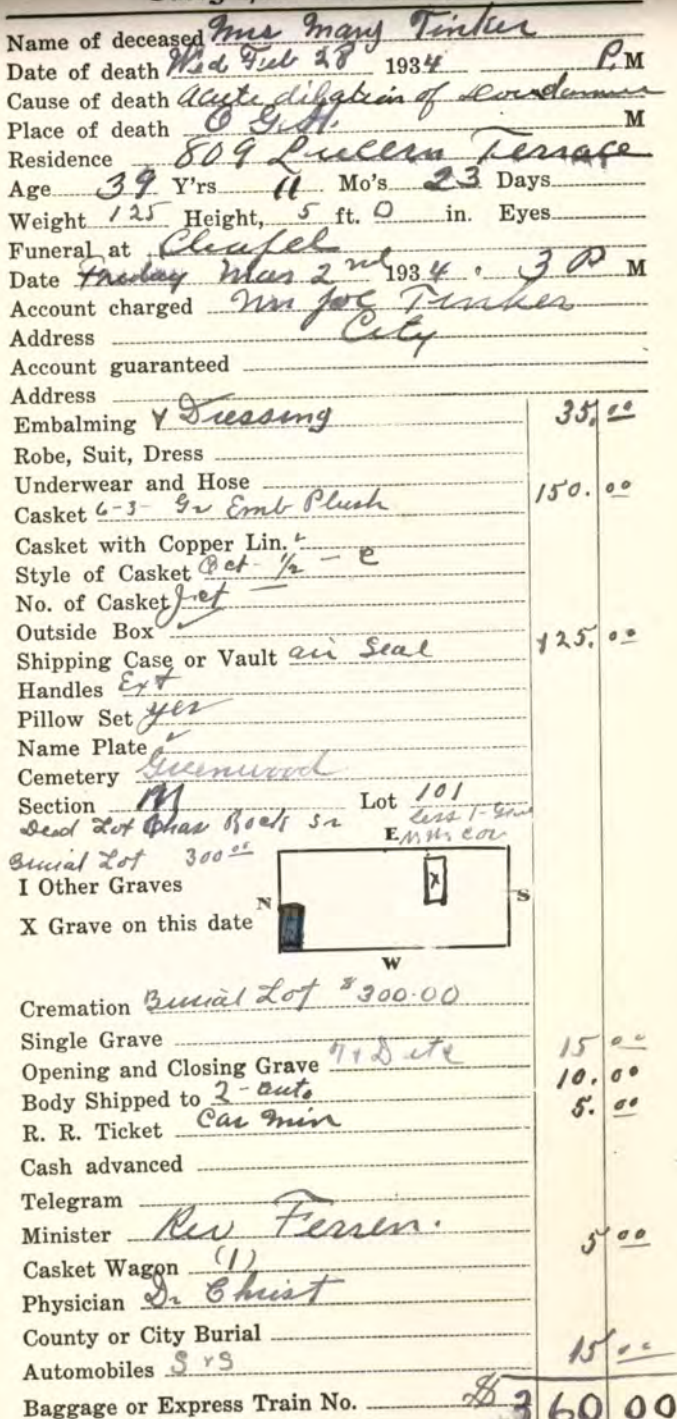 Name of deceased Mrs Mary Tinker
Date of death Wed Feb 28 1934 P. M
Cause of death acute dilation of
Place of death O G. H. M
Residence 809 Lucern Terrace
Age 39 Y'rs 11 Mo's 23 Days
Weight 125 Height, 5 ft. 0 in. Eyes
Funeral at Chapel
Date Friday Mar 2nd 1934 . 3 P M
Account charged Mr Joe Tinker
Address City
Account guaranteed
Address
Embalming & Dressing 35.00
Robe, Suit, Dress
Underwear and Hose
Casket 6-3- Gr Emb Plush 150.00
Casket with Copper Lin.
Style of Casket Oct- 1/2 - C
No. of Casket
Outside Box ✓
Shipping Case or Vault air Seal 125.00
Handles Ext
Pillow Set yes
Name Plate ✓
Cemetery Greenwood
Section M Lot 101
Deed Lot Chas Rock Sr less 1-Grave
Burial Lot 300.00 E
I Other Graves
N X S
X Grave on this date
W
Cremation Burial Lot $300.00
Single Grave
Opening and Closing Grave 15 00
Body Shipped to 2-auto 10.00
R. R. Ticket Car min 5.00
Cash advanced
Telegram
Minister Rev Ferren.
Casket Wagon (1) 5 00
Physician Dr Christ
County or City Burial
Automobiles 15 00
Baggage or Express Train No. $ 360 00